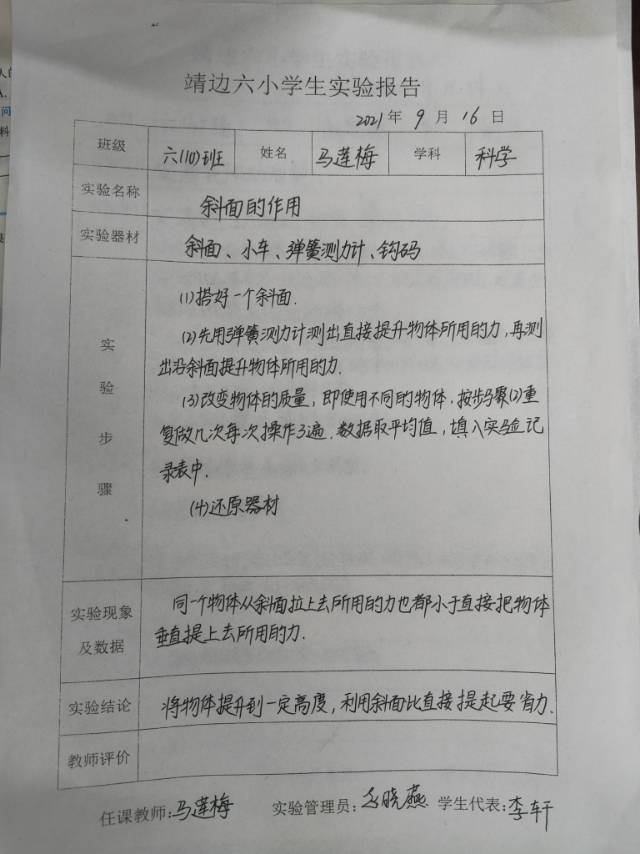 靖边六小学生实验报告
2021年 9 月 16 日
班级 六(10)班 姓名 马莲梅 学科 科学
实验名称 斜面的作用
实验器材 斜面、小车、弹簧测力计、钩码
实验步骤
(1)搭好一个斜面.
(2)先用弹簧测力计测出直接提升物体所用的力,再测
出沿斜面提升物体所用的力.
(3)改变物体的质量,即使用不同的物体,按步骤(2)重
复做几次每次操作3遍.数据取平均值,填入实验记
录表中.
(4)还原器材
实验现象及数据
同一个物体从斜面拉上去所用的力也都小于直接把物体
垂直提上去所用的力.
实验结论 将物体提升到一定高度,利用斜面比直接提起要省力.
教师评价
任课教师:马莲梅 实验管理员: 晓燕 学生代表:李轩